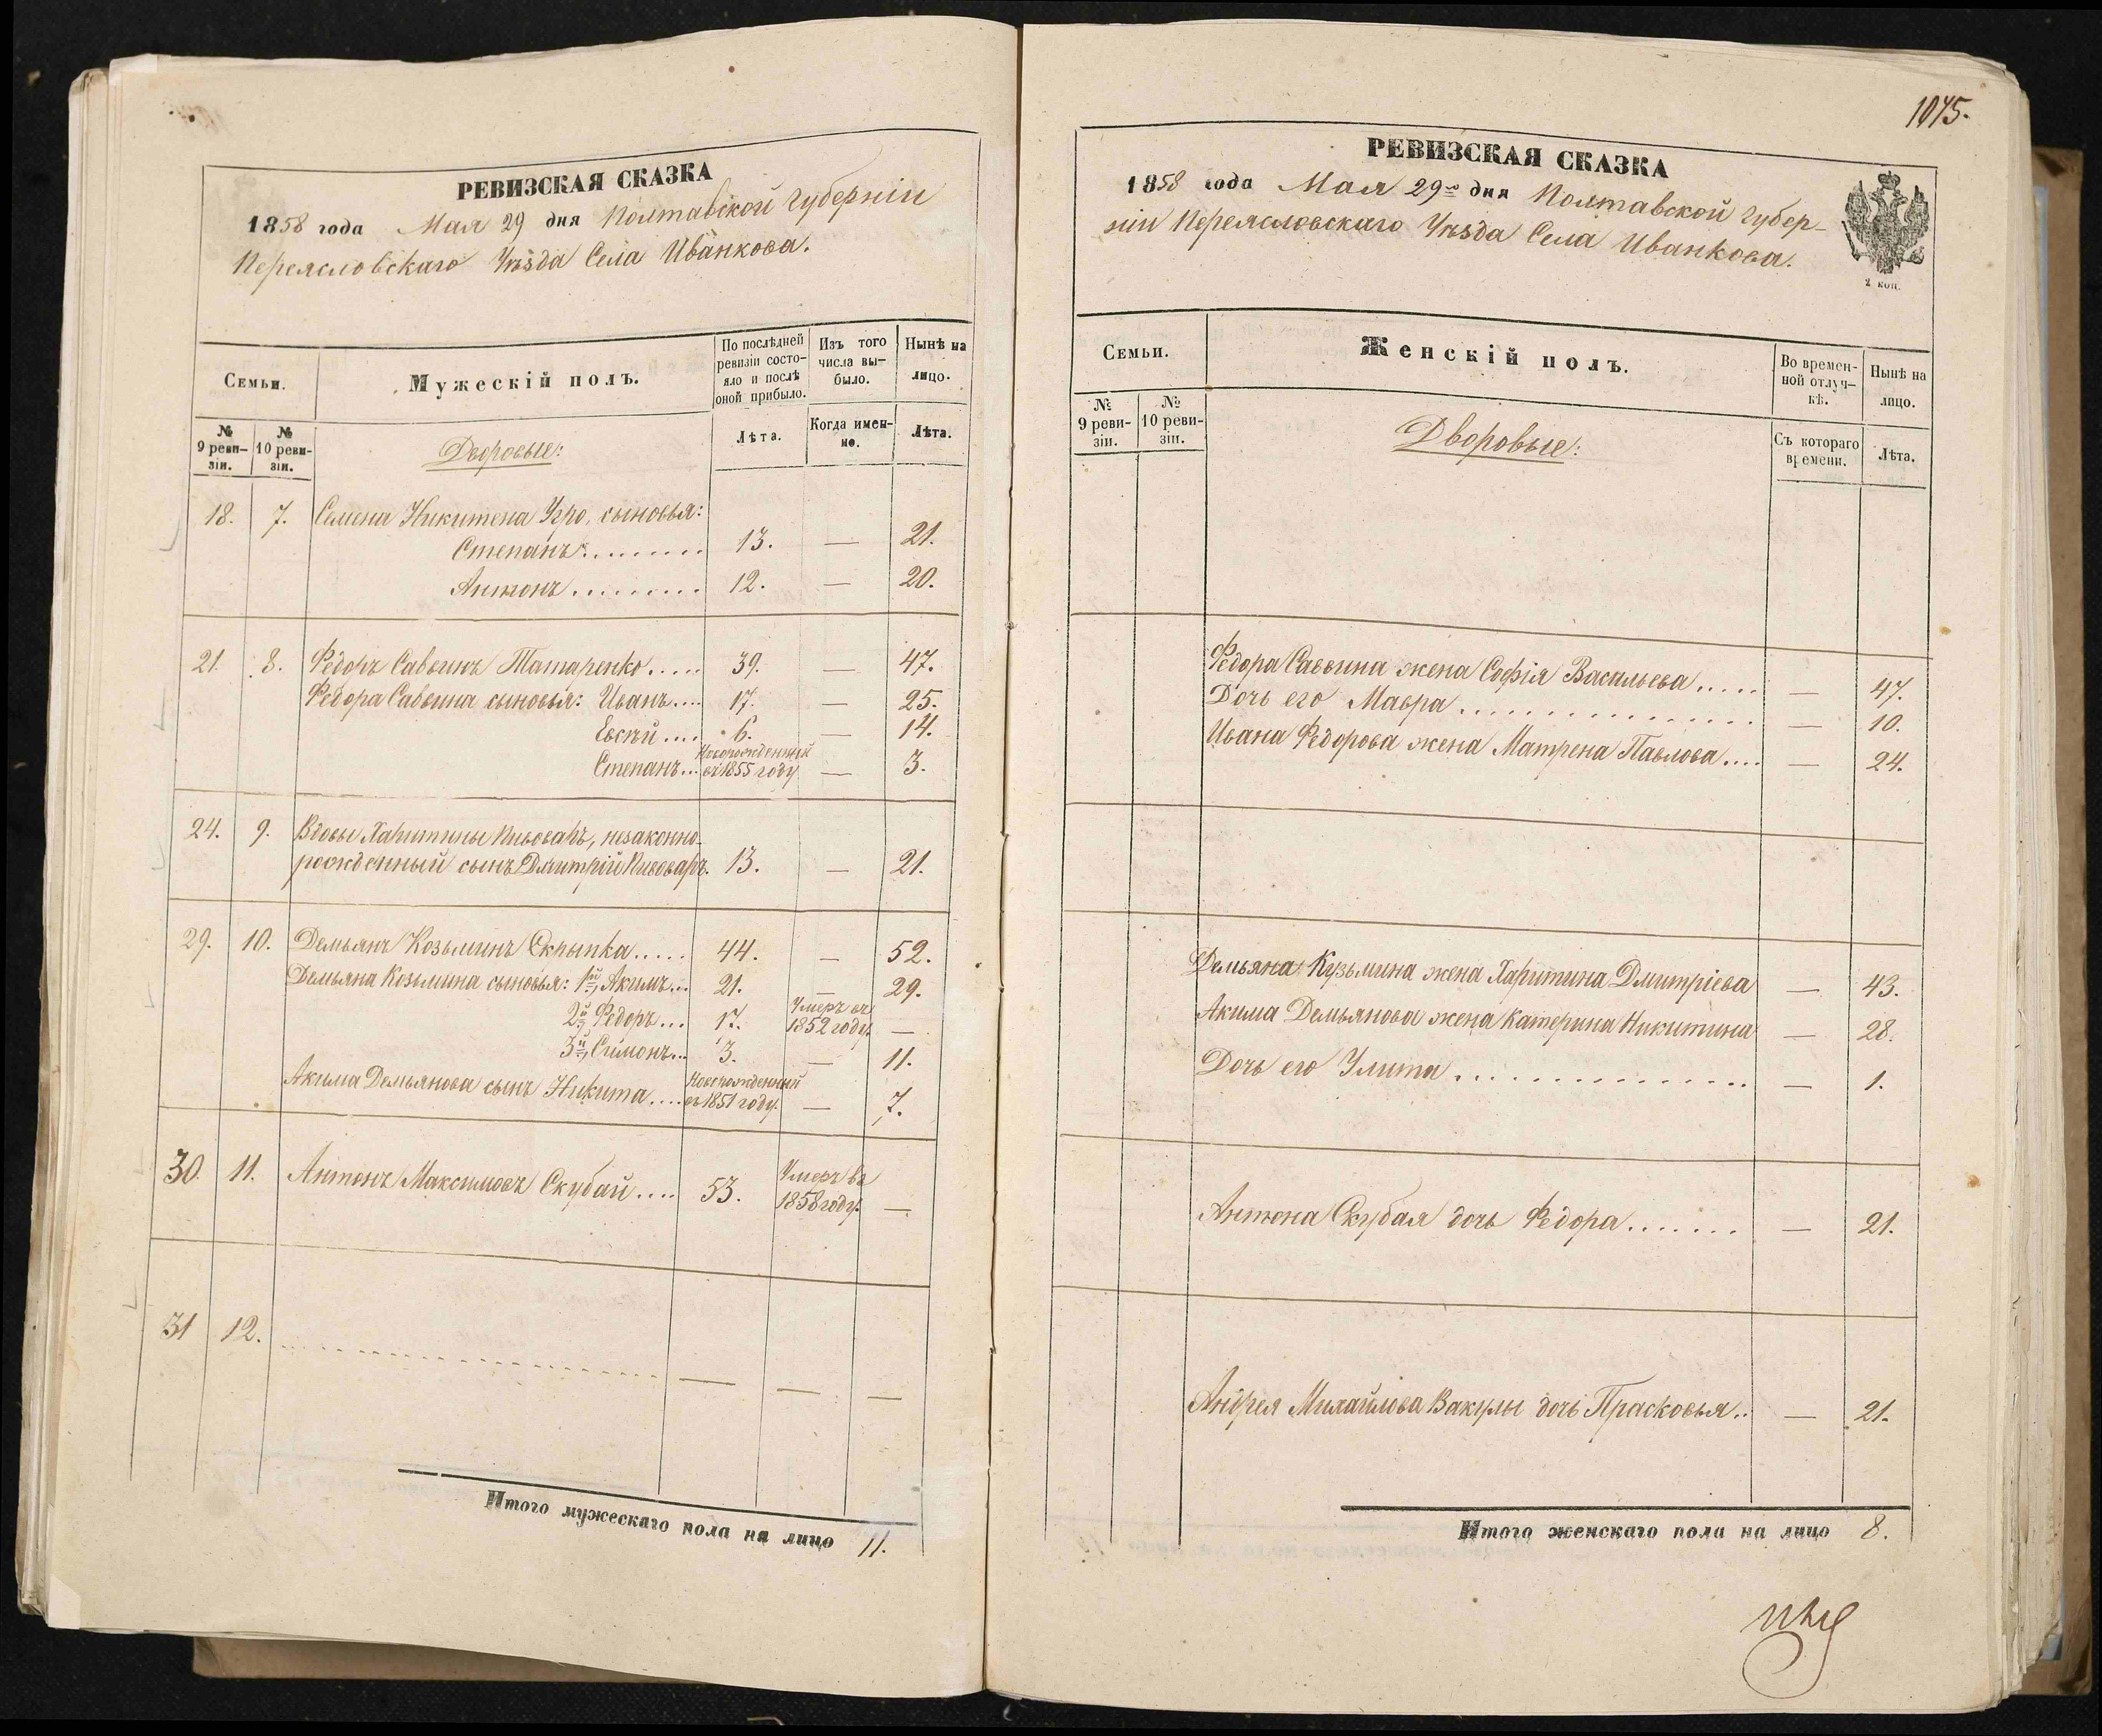 РЕВИЗСКАЯ СКАЗКА
1858 года Мая 29 дня Полтавской Губерніи
Переясловскаго Уѣзда Села Иванкова.
Семьи.
Мужескій полъ.
По послѣдней ревизіи состо-яло и послѣ оной прибыло.
Изъ того числа вы-было.
Нынѣ на лицо.
№ 9 реви-зіи.
№ 10 реви-зіи.
Дворовые:
Лѣта.
Когда имен-но.
Лѣта.
18. 7. Семена Никитена Угро, сыновья:
Степанъ......... 13. — 21.
Антонъ......... 12. — 20.
21. 8. Федоръ Саввинъ Татаренко..... 39. — 47.
Федора Саввина сыновья: Иванъ.... 17. — 25.
Евсѣй.... 6. — 14.
Степанъ... Новорожденный въ 1855 году — 3.
24. 9. Вдовы Харитины Пивоваръ, незаконно-
рожденный сынъ Дмитрій Пивоваръ. 13. — 21.
29. 10. Демьянъ Козьминъ Скрыпка..... 44. — 52.
Демьяна Козьмина сыновья: 1й, Акимъ... 21. — 29.
2й, Федоръ... 17. Умеръ въ 1852 году. —
3й, Симонъ... 3. — 11.
Акима Демьянова сынъ Никита.... Новорожденный въ 1851 году. — 7.
30. 11. Антонъ Максимовъ Скубай.... 53. Умеръ въ 1858 году. —
31 12. — — —
Итого мужескаго пола на лицо 11.
1075.
РЕВИЗСКАЯ СКАЗКА
1858 года Мая 29го дня Полтавской Губер-
ніи Переясловскаго Уѣзда Села Иванкова.
2 коп.
Семьи.
Женскій полъ.
Во времен-ной отлуч-кѣ.
Нынѣ на лицо.
№ 9 реви-зіи.
№ 10 реви-зіи.
Дворовые:
Съ котораго времени.
Лѣта.
Федора Саввина жена Софія Васильева..... — 47.
Дочь его Мавра................ — 10.
Ивана Федорова жена Матрена Павлова.... — 24.
Демьяна Кузьмина жена Харитина Дмитріева — 43.
Акима Демьянова жена Катерина Никитина — 28.
Дочь его Улита............... — 1.
Антона Скубая дочь Федора....... — 21.
Андрея Михайлова Вакулы дочь Прасковья.. — 21.
Итого женскаго пола на лицо 8.